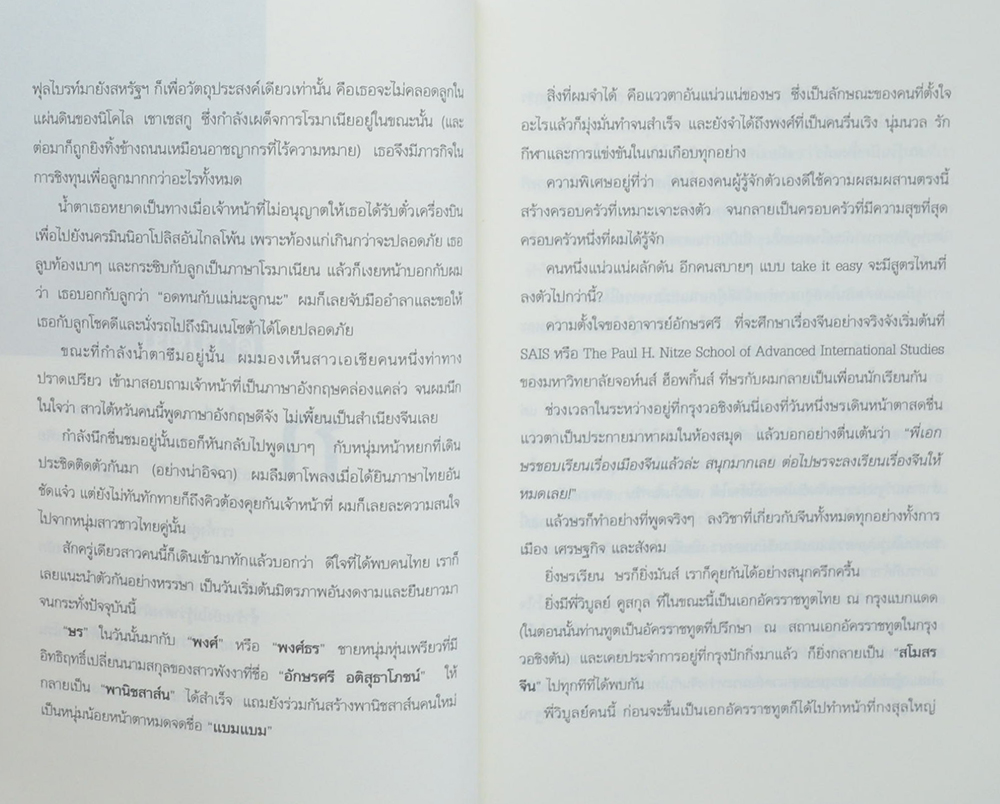 ฟุลไบรท์มายังสหรัฐฯ ก็เพื่อวัตถุประสงค์เดียวเท่านั้น คือเธอจะไม่คลอดลูกใน
แผ่นดินของนิโคไล เชาเชสกู ซึ่งกำลังเผด็จการโรมาเนียอยู่ในขณะนั้น (และ
ต่อมาก็ถูกยิงทิ้งข้างถนนเหมือนอาชญากรที่ไร้ความหมาย) เธอจึงมีภารกิจใน
การชิงทุนเพื่อลูกมากกว่าอะไรทั้งหมด
น้ำตาเธอหยาดเป็นทางเมื่อเจ้าหน้าที่ไม่อนุญาตให้เธอได้รับตั๋วเครื่องบิน
เพื่อไปยังนครมินนิอาโปลิสอันไกลโพ้น เพราะท้องแก่เกินกว่าจะปลอดภัย เธอ
ลูบท้องเบาๆ และกระซิบกับลูกเป็นภาษาโรมาเนียน แล้วก็เงยหน้าบอกกับผม
ว่า เธอบอกกับลูกว่า "อดทนกับแม่นะลูกนะ" ผมก็เลยจับมืออำลาและขอให้
เธอกับลูกโชคดีและนั่งรถไปถึงมินเนโซต้าได้โดยปลอดภัย
ขณะที่กำลังน้ำตาซึมอยู่นั้น ผมมองเห็นสาวเอเชียคนหนึ่งท่าทาง
ปราดเปรียว เข้ามาสอบถามเจ้าหน้าที่เป็นภาษาอังกฤษคล่องแคล่ว จนผมนึก
ในใจว่า สาวไต้หวันคนนี้พูดภาษาอังกฤษดีจัง ไม่เพี้ยนเป็นสำเนียงจีนเลย
กำลังนึกชื่นชมอยู่นั้นเธอก็หันกลับไปพูดเบาๆ กับหนุ่มหน้าหยกที่เดิน
ประชิดติดตัวกันมา (อย่างน่าอิจฉา) ผมลืมตาโพลงเมื่อได้ยินภาษาไทยอัน
ชัดแจ๋ว แต่ยังไม่ทันทักทายก็ถึงคิวต้องคุยกับเจ้าหน้าที่ ผมก็เลยละความสนใจ
ไปจากหนุ่มสาวชาวไทยคู่นั้น
สักครู่เดียวสาวคนนี้ก็เดินเข้ามาทักแล้วบอกว่า ดีใจที่ได้พบคนไทย เราก็
เลยแนะนำตัวกันอย่างหรรษา เป็นวันเริ่มต้นมิตรภาพอันงดงามและยืนยาวมา
จนกระทั่งปัจจุบันนี้
"ษร" ในวันนั้นมากับ "พงศ์" หรือ "พงศ์ธร" ชายหนุ่มหุ่นเพรียวที่มี
อิทธิฤทธิ์เปลี่ยนนามสกุลของสาวพังงาที่ชื่อ "อักษรศรี อติสุธาโภชน์" ให้
กลายเป็น "พานิชสาส์น" ได้สำเร็จ แถมยังร่วมกันสร้างพานิชสาส์นคนใหม่
เป็นหนุ่มน้อยหน้าตาหมดจดชื่อ "แบมแบม"
สิ่งที่ผมจำได้ คือแววตาอันแน่วแน่ของษร ซึ่งเป็นลักษณะของคนที่ตั้งใจ
อะไรแล้วก็มุ่งมั่นทำจนสำเร็จ และยังจำได้ถึงพงศ์ที่เป็นคนรื่นเริง นุ่มนวล รัก
กีฬาและการแข่งขันในเกมเกือบทุกอย่าง
ความพิเศษอยู่ที่ว่า คนสองคนผู้รู้จักตัวเองดีใช้ความผสมผสานตรงนี้
สร้างครอบครัวที่เหมาะเจาะลงตัว จนกลายเป็นครอบครัวที่มีความสุขที่สุด
ครอบครัวหนึ่งที่ผมได้รู้จัก
คนหนึ่งแน่วแน่ผลักดัน อีกคนสบายๆ แบบ take it easy จะมีสูตรไหนที่
ลงตัวไปกว่านี้?
ความตั้งใจของอาจารย์อักษรศรี ที่จะศึกษาเรื่องจีนอย่างจริงจังเริ่มต้นที่
SAIS หรือ The Paul H. Nitze School of Advanced International Studies
ของมหาวิทยาลัยจอห์นส์ ฮ็อพกิ้นส์ ที่ษรกับผมกลายเป็นเพื่อนนักเรียนกัน
ช่วงเวลาในระหว่างอยู่ที่กรุงวอชิงตันนี้เองที่วันหนึ่งษรเดินหน้าตาสดชื่น
แววตาเป็นประกายมาหาผมในห้องสมุด แล้วบอกอย่างตื่นเต้นว่า "พี่เอก
ษรชอบเรียนเรื่องเมืองจีนแล้วล่ะ สนุกมากเลย ต่อไปษรจะลงเรียนเรื่องจีนให้
หมดเลย!"
แล้วษรก็ทำอย่างที่พูดจริงๆ ลงวิชาที่เกี่ยวกับจีนทั้งหมดทุกอย่างทั้งการ
เมือง เศรษฐกิจ และสังคม
ยิ่งษรเรียน ษรก็ยิ่งมันส์ เราก็คุยกันได้อย่างสนุกครึกครื้น
ยิ่งมีพี่วิบูลย์ คูสกุล ที่ในขณะนี้เป็นเอกอัครราชทูตไทย ณ กรุงแบกแดด
(ในตอนนั้นท่านทูตเป็นอัครราชทูตที่ปรึกษา ณ สถานเอกอัครราชทูตในกรุง
วอชิงตัน) และเคยประจำการอยู่ที่กรุงปักกิ่งมาแล้ว ก็ยิ่งกลายเป็น "สโมสร
จีน" ไปทุกทีที่ได้พบกัน
พี่วิบูลย์คนนี้ ก่อนจะขึ้นเป็นเอกอัครราชทูตก็ได้ไปทำหน้าที่กงสุลใหญ่